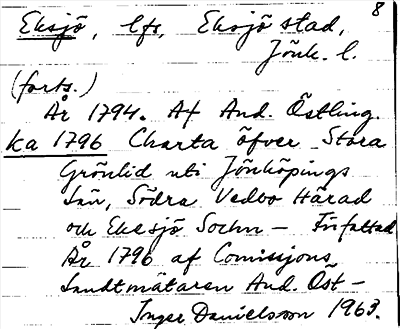 8
Eksjö, lfs, Eksjö stad,
Jönk. l.
(forts.)
År 1794. Af And. Östling.
ka 1796 Charta öfver Stora
Grönlid uti Jönköpings
Län, Södra Vedbo Härad
och Eksjö Sochn – Författad
År 1796 af Comissions
Landtmätaren And. Öst –
Inger Danielsson 1963.